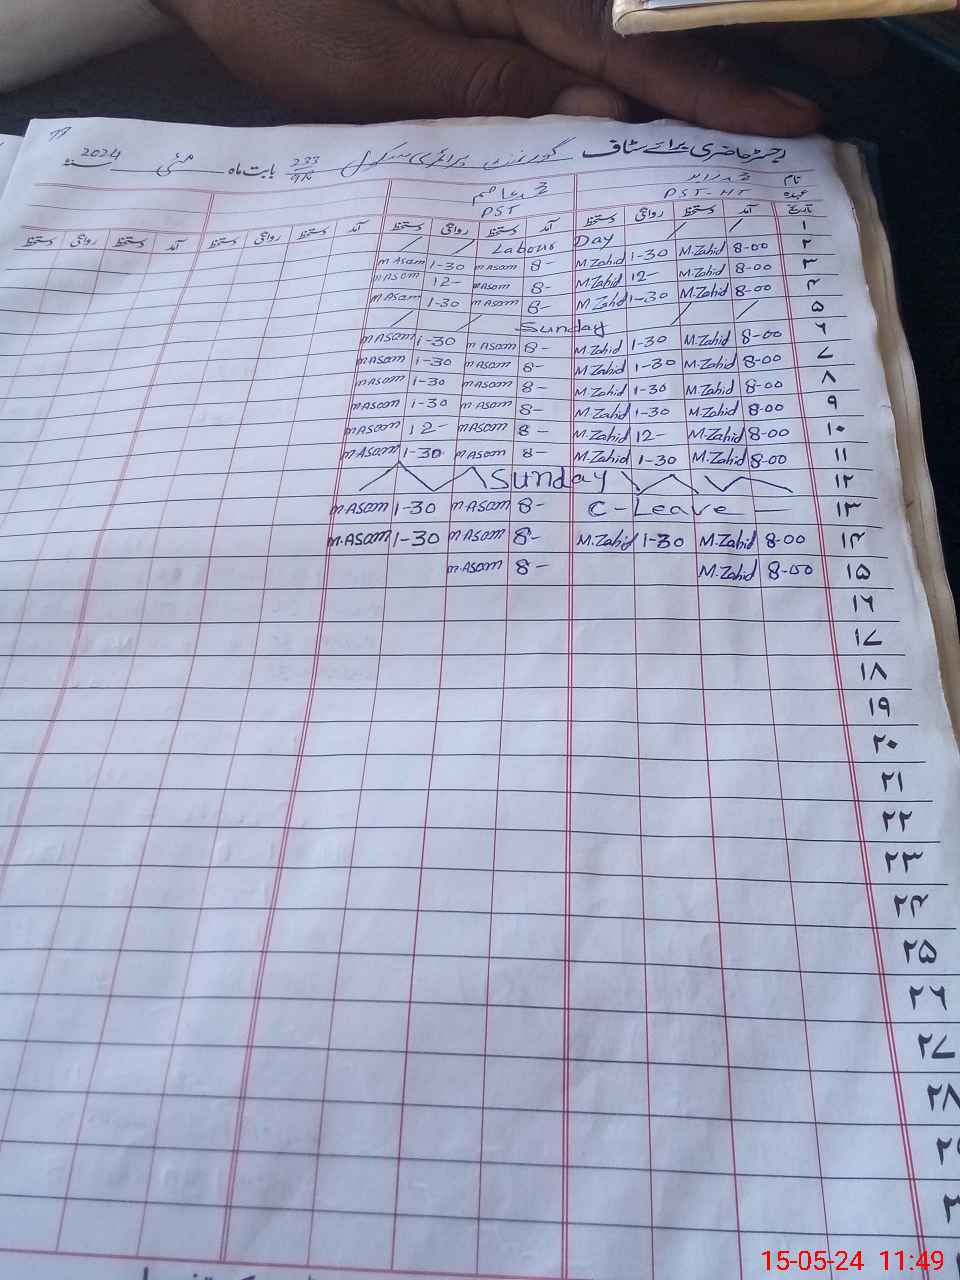 77
رجسٹر حاضری برائے سٹاف گورنمنٹ پرائمری سکول 233/9R بابت ماہ مئی 2024
نام محمد زاہد محمد عاصم
عہدہ PST-HT PST
تاریخ آمد دستخط روانگی دستخط آمد دستخط روانگی دستخط آمد دستخط روانگی دستخط آمد دستخط روانگی دستخط
۱ Labour Day
۲ 8-00 M.Zahid 1-30 M.Zahid 8- m Asam 1-30 m Asam
۳ 8-00 M.Zahid 12- M.Zahid 8- m Asam 12- m Asam
۴ 8-00 M.Zahid 1-30 M.Zahid 8- m Asam 1-30 m Asam
۵ Sunday
۶ 8-00 M.Zahid 1-30 M.Zahid 8- m Asam 1-30 m Asam
۷ 8-00 M.Zahid 1-30 M.Zahid 8- m Asam 1-30 m Asam
۸ 8-00 M.Zahid 1-30 M.Zahid 8- m Asam 1-30 m Asam
۹ 8-00 M.Zahid 1-30 M.Zahid 8- m Asam 1-30 m Asam
۱۰ 8-00 M.Zahid 12- M.Zahid 8- m Asam 12- m Asam
۱۱ 8-00 M.Zahid 1-30 M.Zahid 8- m Asam 1-30 m Asam
۱۲ Sunday
۱۳ C-Leave 8- m Asam 1-30 m Asam
۱۴ 8-00 M.Zahid 1-30 M.Zahid 8- m Asam 1-30 m.Asam
۱۵ 8-00 M.Zahid 8- m.Asam
۱۶
۱۷
۱۸
۱۹
۲۰
۲۱
۲۲
۲۳
۲۴
۲۵
۲۶
۲۷
۲۸
15-05-24 11:49